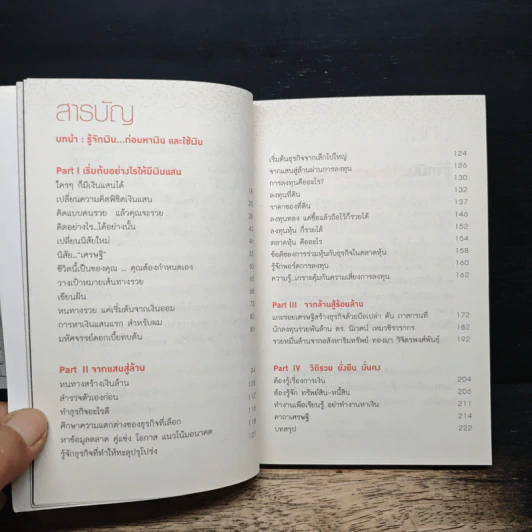 สารบัญ
บทนำ : รู้จักเงิน...ก่อนหาเงิน และใช้เงิน
Part I เริ่มต้นอย่างไรให้มีเงินแสน
ใครๆ ก็มีเงินแสนได้
เปลี่ยนความคิดพิชิตเงินแสน
คิดแบบคนรวย แล้วคุณจะรวย
คิดอย่างไร...ได้อย่างนั้น
เปลี่ยนนิสัยใหม่
นิสัย..."เศรษฐี"
ชีวิตนี้เป็นของคุณ ... คุณต้องกำหนดเอง
วางเป้าหมายเส้นทางรวย
เขียนฝัน
หนทางรวย แค่เริ่มต้นจากเงินออม
การหาเงินแสนแรก สำหรับผม
มหัศจรรย์ดอกเบี้ยทบต้น
Part II จากแสนสู่ล้าน
หนทางสร้างเงินล้าน
สำรวจตัวเองก่อน
ทำธุรกิจอะไรดี
ศึกษาความแตกต่างของธุรกิจที่เลือก
หาข้อมูลตลาด คู่แข่ง โอกาส แนวโน้มอนาคต
รู้จักธุรกิจที่ทำให้ทะลุปรุโปร่ง
เริ่มต้นธุรกิจจากเล็กไปใหญ่ 124
จากแสนสู่ล้านผ่านการลงทุน 126
การลงทุนคืออะไร? 130
ลงทุนที่ดิน 132
ราคาของที่ดิน 137
ลงทุนทอง แค่ซื้อแล้วถือไว้ก็รวยได้ 146
ลงทุนหุ้น ก็รวยได้ 152
ตลาดหุ้น คืออะไร 154
ข้อดีของการร่วมหุ้นกับธุรกิจในตลาดหุ้น 158
รู้จักพอร์ตการลงทุน 160
ความรู้...เกราะคุ้มกันความเสี่ยงการลงทุน 162
Part III จากล้านสู่ร้อยล้าน
แกะรอยเศรษฐีสร้างธุรกิจด้วยมือเปล่า ตัน ภาสกรนที 172
นักลงทุนรวยพันล้าน ดร. นิเวศน์ เหมวชิรวรากร 177
รวยหมื่นล้านจากอสังหาริมทรัพย์ ทองมา วิจิตรพงศ์พันธุ์ 192
Part IV วิถีรวย ยั่งยืน มั่นคง
ต้องรู้เรื่องการเงิน 204
ต้องรู้จัก ทรัพย์สิน-หนี้สิน 206
ทำงานเพื่อเรียนรู้ อย่าทำงานหาเงิน 211
คาถาเศรษฐี 214
บทสรุป 222